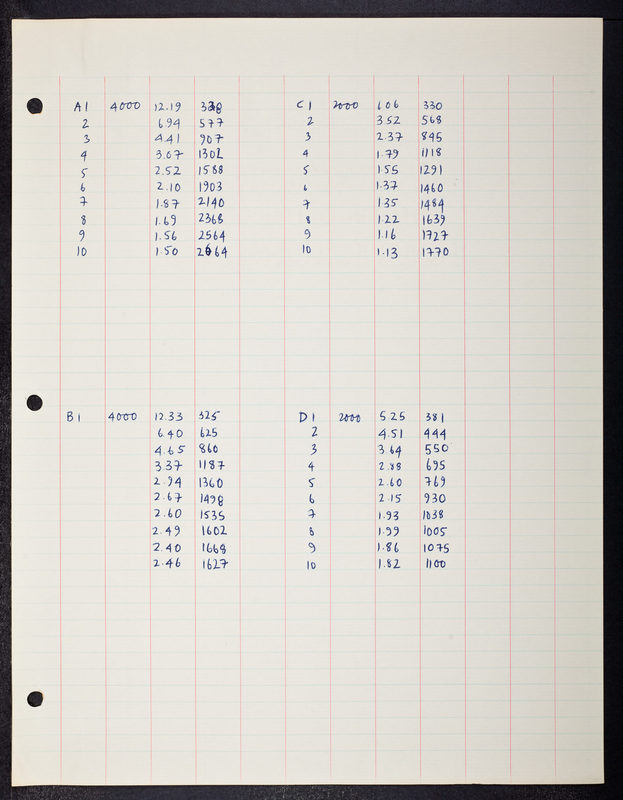 A1 4000 12.19 328 C1 2000 6.06 330
2 6.94 577 2 3.52 568
3 4.41 907 3 2.37 845
4 3.07 1302 4 1.79 1118
5 2.52 1588 5 1.55 1291
6 2.10 1903 6 1.37 1460
7 1.87 2140 7 1.35 1484
8 1.69 2368 8 1.22 1639
9 1.56 2564 9 1.16 1727
10 1.50 2664 10 1.13 1770
B1 4000 12.33 325 D1 2000 5.25 381
6.40 625 2 4.51 444
4.65 860 3 3.64 550
3.37 1187 4 2.88 695
2.94 1360 5 2.60 769
2.67 1498 6 2.15 930
2.60 1535 7 1.93 1038
2.49 1602 8 1.99 1005
2.40 1668 9 1.86 1075
2.46 1627 10 1.82 1100